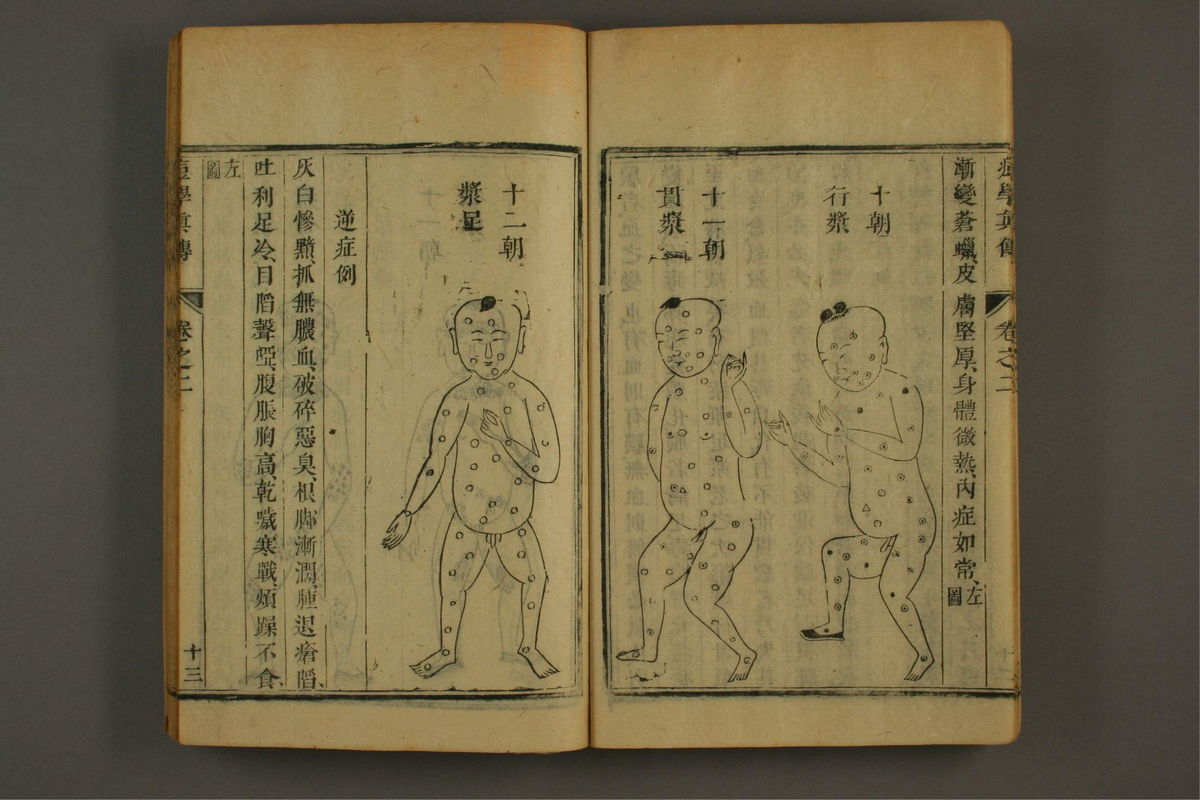 痘學真傳
卷之二
十二
漸變蒼蠟、皮膚堅厚、身體微熱、內症如常、左圖
十朝
行漿
十一朝
貫漿
十二朝
漿足
逆症例
灰白慘黯、抓無膿血、破碎惡臭、根脚漸濶、腫退瘡陷、
吐利足冷、目陷聲啞、腹脹胸高、乾嘔寒戰、煩躁不食、
左圖
痘學真傳
卷之二
十三